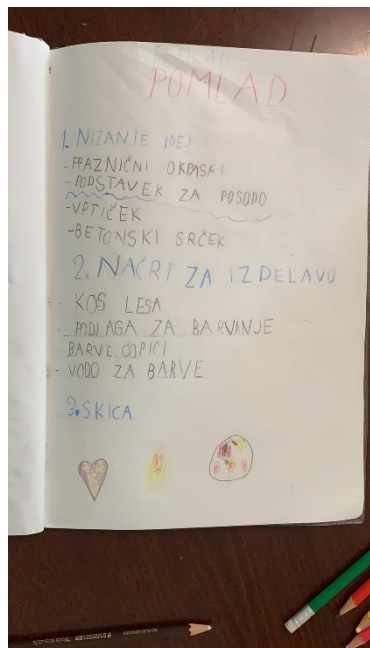 POMLAD
1. NIZANJE IDEJ
- PRAZNIČNI OKRASKI
- PODSTAVEK ZA POSODO
- VRTIČEK
- BETONSKI SRČEK
2. NAČRT ZA IZDELAVO
- KOS LESA
- PODLAGA ZA BARVINJE
- BARVE, ČOPIČI
- VODO ZA BARVE
3. SKICA
STAEDTLER